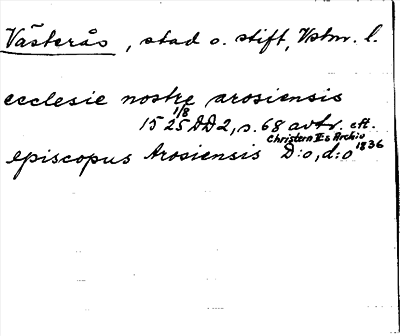 Västerås, stad o. stift, Vstm. l.
ecclesie nostre arosiensis
1/8
1525 DD2, s. 68 avtr. eft.
Christern II:s Archiv
episcopus Arosiensis D:o, d:o 1836